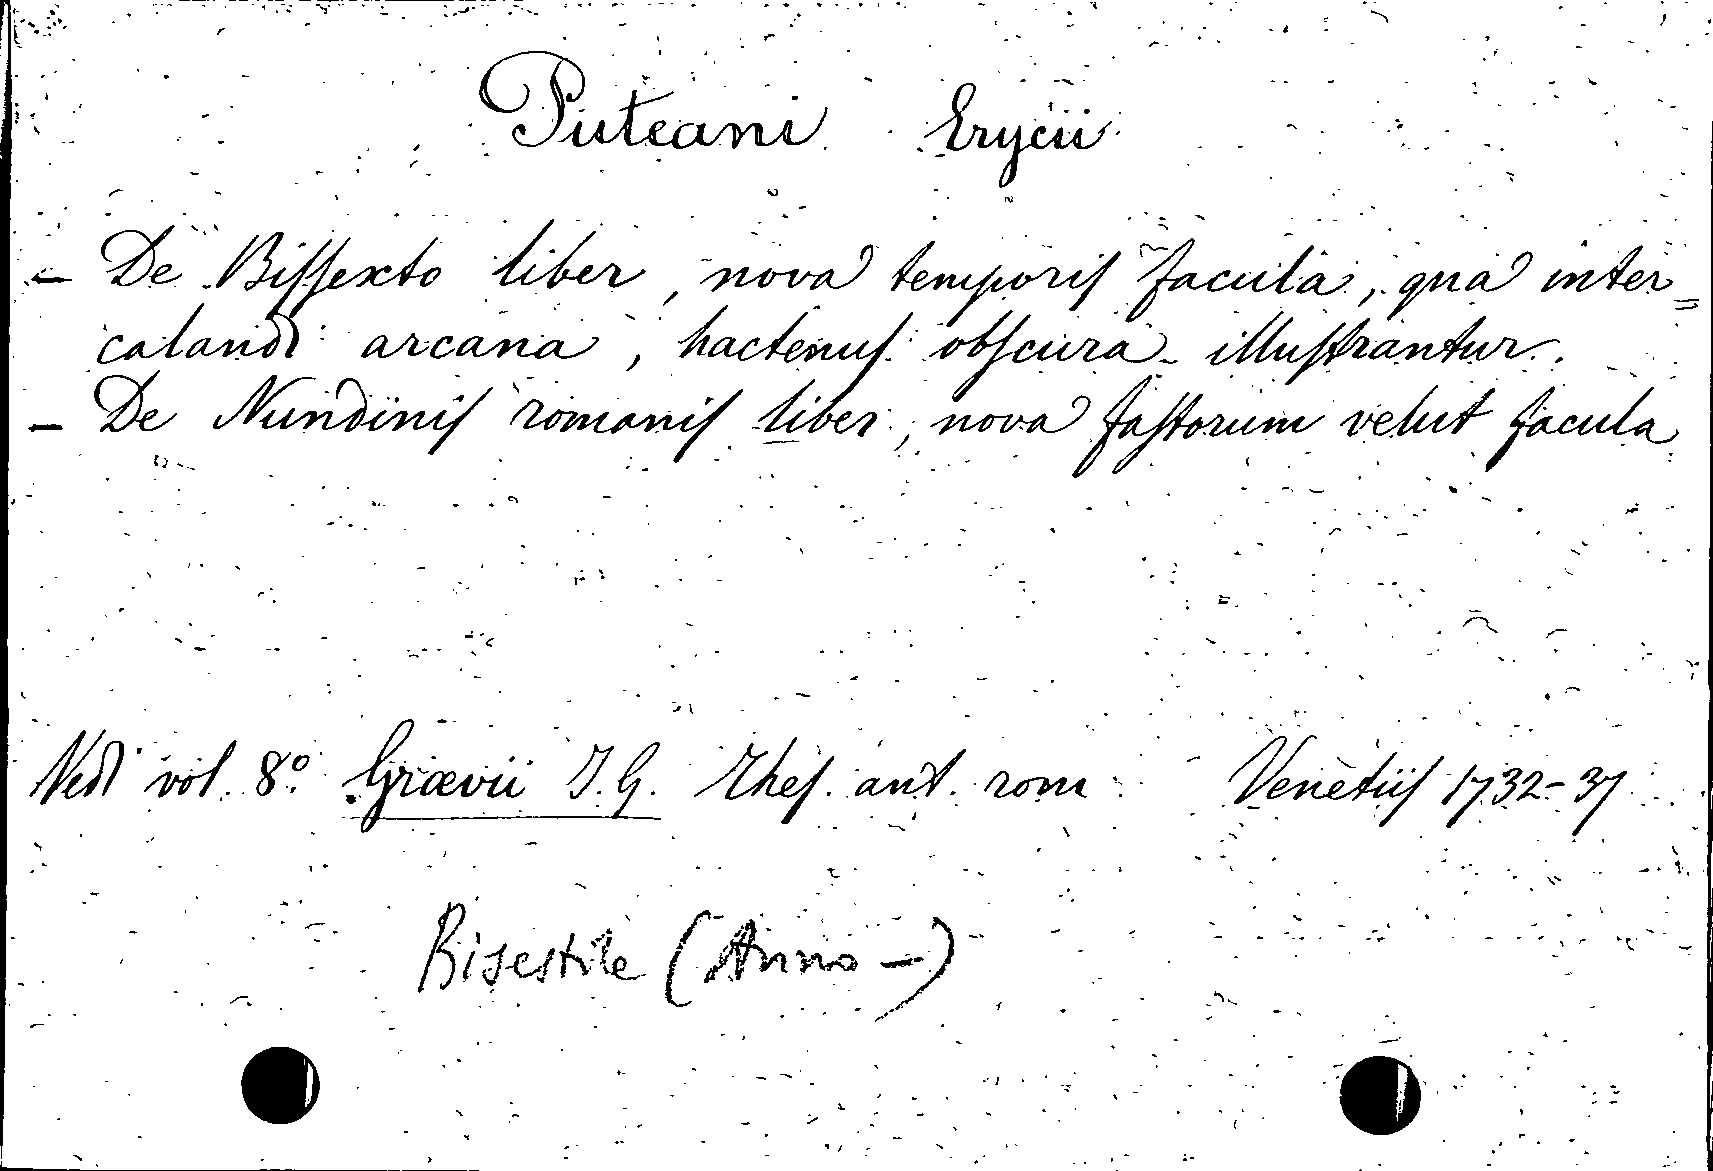 Puteani Erycii
- De Bissexto liber, nova temporis facula, qua inter=
calandi arcana, hactenus obscura illustrantur.
- De Nundinis romanis liber, nova fastorum velut facula
Vedi vol. 8º Grævii J. G. Thes. ant. rom Venetiis 1732-37
Bisestile (Anno -)